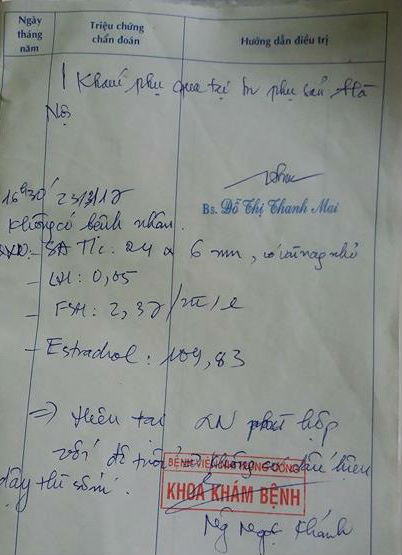 Ngày tháng năm
Triệu chứng chẩn đoán
Hướng dẫn điều trị
Khám phụ khoa tại BV phụ sản Hà
Nội
16h30 23/2/17
Bs. Đỗ Thị Thanh Mai
không có bệnh nhân.
SA TC: 24 x 6 mm, có vài nang nhỏ
- LH: 0,05
- FSH: 2,37
- Estradiol: 109,83
=> Hiện tại XN phù hợp
với độ tuổi không có dấu hiệu
dậy thì sớm.
BỆNH VIỆN NHI TRUNG ƯƠNG
KHOA KHÁM BỆNH
Ng Ngọc Khánh